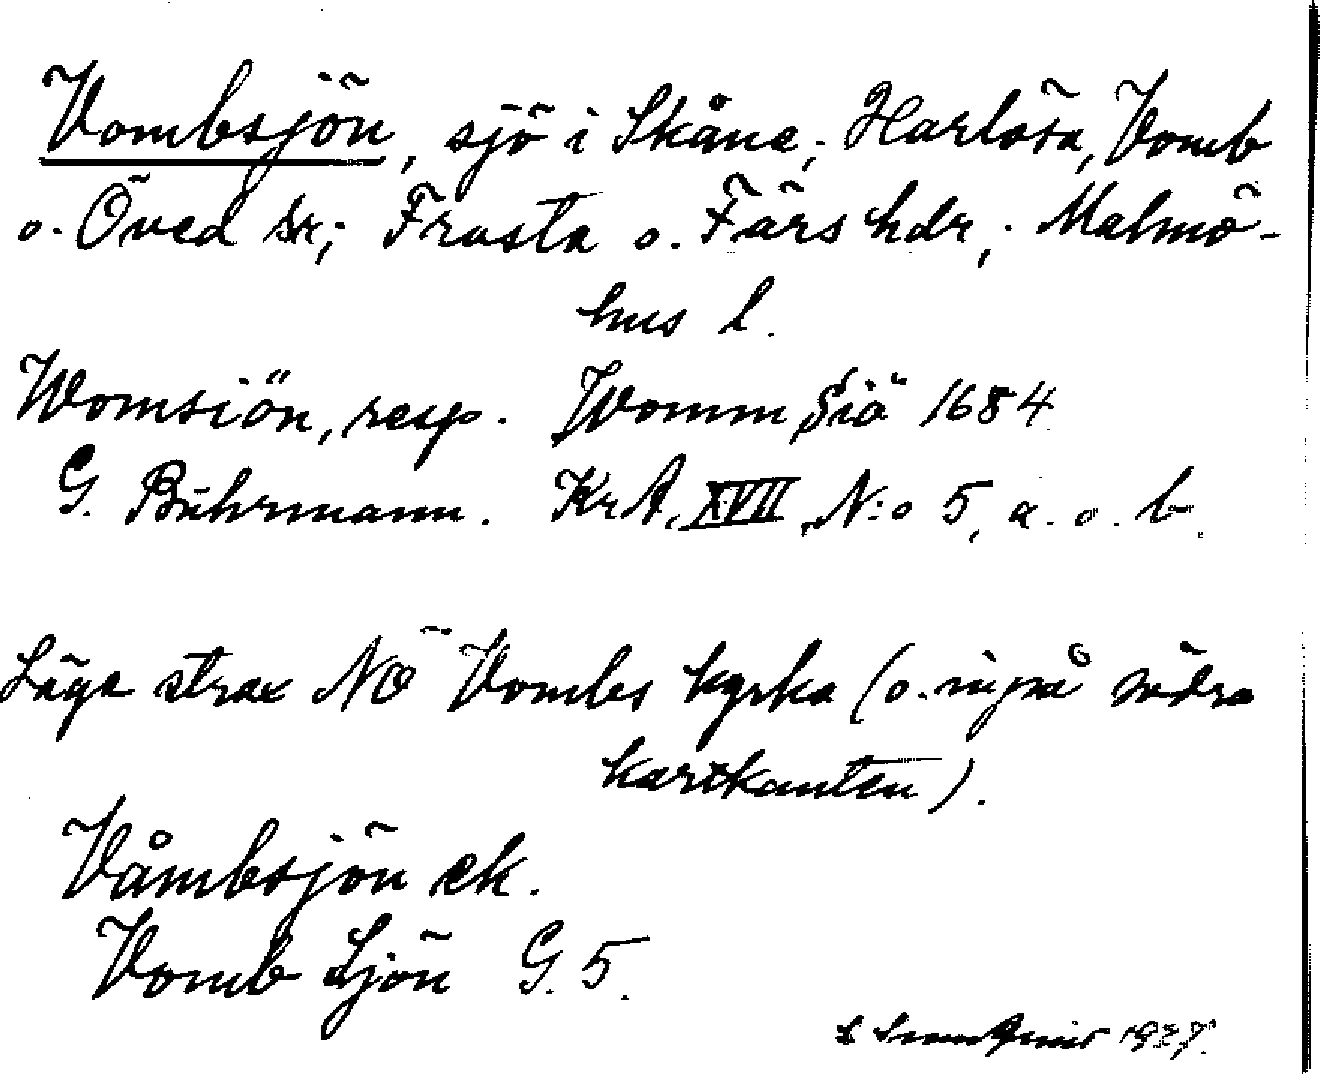 Vombsjön, sjö i Skåne; Harlösa, Vomb
o. Öved sr; Frosta o. Färs hdr; Malmö-
hus l.
Womsiön, resp. Womm Siö 1684
G. Buhrmann. KrA, XVII, N:o 5, a. o. b.
Läge strax NO Vombs kyrka (o. inpå södra
kartkanten).
Våmbsjön ek.
Vomb Sjön G. 5.
1927.